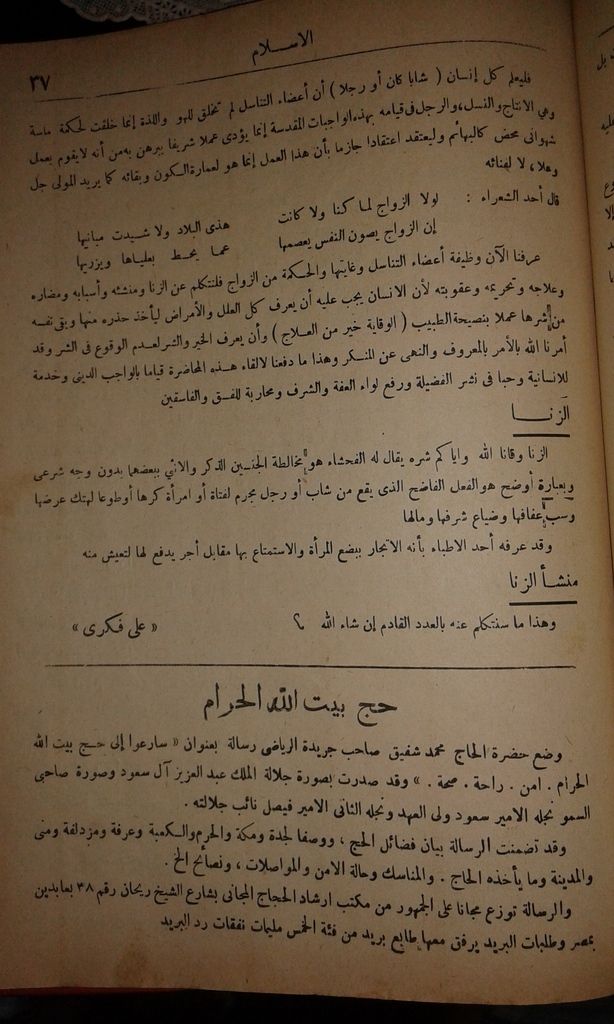 الاسلام
٣٧
فليعلم كل إنسان ( شابا كان أو رجلا ) أن أعضاء التناسل لم تخلق للهو واللذة إنما خلقت لحكمة ماسة
وهي الانتاج والنسل، والرجل في قيامه بهذه الواجبات المقدسة إنما يؤدى عملا شريفا يبرهن به من أنه لا يقوم بعمل
شهواني محض كالبهائم وليعتقد اعتقادا جازما بأن هذا العمل إنما هو لعمارة الكون وبقائه كما يريد المولى جل
وعلا ، لا لفنائه
قال أحد الشعراء :
لولا الزواج لما كنا ولا كانت هذى البلاد ولا شيدت مبانيها
إن الزواج يصون النفس يعصمها عما يحط بعلياها ويزريها
عرفنا الآن وظيفة أعضاء التناسل وغايتها والحكمة من الزواج فلنتكلم عن الزنا ومنشئه وأسبابه ومضاره
وعلاجه وتحريمه وعقوبته لأن الانسان يجب عليه أن يعرف كل العلل والأمراض ليأخذ حذره منها ويقى نفسه
من شرها عملا بنصيحة الطبيب ( الوقاية خير من العلاج ) وأن يعرف الخير والشر لعدم الوقوع في الشر وقد
أمرنا الله بالأمر بالمعروف والنهى عن المنكر وهذا ما دفعنا لالقاء هذه المحاضرة قياما بالواجب الدينى وخدمة
للانسانية وحبا فى نشر الفضيلة ورفع لواء العفة والشرف ومحاربة للفسق والفاسقين
الزنا
الزنا وقانا الله واياكم شره يقال له الفحشاء هو مخالطة الجنسين الذكر والانثى ببعضهما بدون وجه شرعى
وبعبارة أوضح هو الفعل الفاضح الذى يقع من شاب أو رجل مجرم لفتاة أو امرأة كرها أو طوعا لهتك عرضها
وسب عفافها وضياع شرفها ومالها
وقد عرفه أحد الاطباء بأنه الاتجار ببضع المرأة والاستمتاع بها مقابل أجر يدفع لها لتعيش منه
منشأ الزنا
وهذا ما سنتكلم عنه بالعدد القادم إن شاء الله « على فكرى »
حج بيت الله الحرام
وضع حضرة الحاج محمد شفيق صاحب جريدة الرياضى رسالة بعنوان « سارعوا إلى حج بيت الله
الحرام . امن . راحة . صحة . » وقد صدرت بصورة جلالة الملك عبد العزيز آل سعود وصورة صاحبى
السمو نجله الامير سعود ولى العهد ونجله الثانى الامير فيصل نائب جلالته .
وقد تضمنت الرسالة بيان فضائل الحج ، ووصفا لجدة ومكة والحرم والكعبة وعرفة ومزدلفة ومنى
والمدينة وما يأخذه الحاج . والمناسك وحالة الامن والمواصلات ، ونصائح الخ .
والرسالة توزع مجانا على الجمهور من مكتب ارشاد الحجاج المجانى بشارع الشيخ ريحان رقم ٣٨ بعابدين
بمصر وطلبات البريد يرفق معها طابع بريد من فئة الخمس مليمات نفقات رد البريد